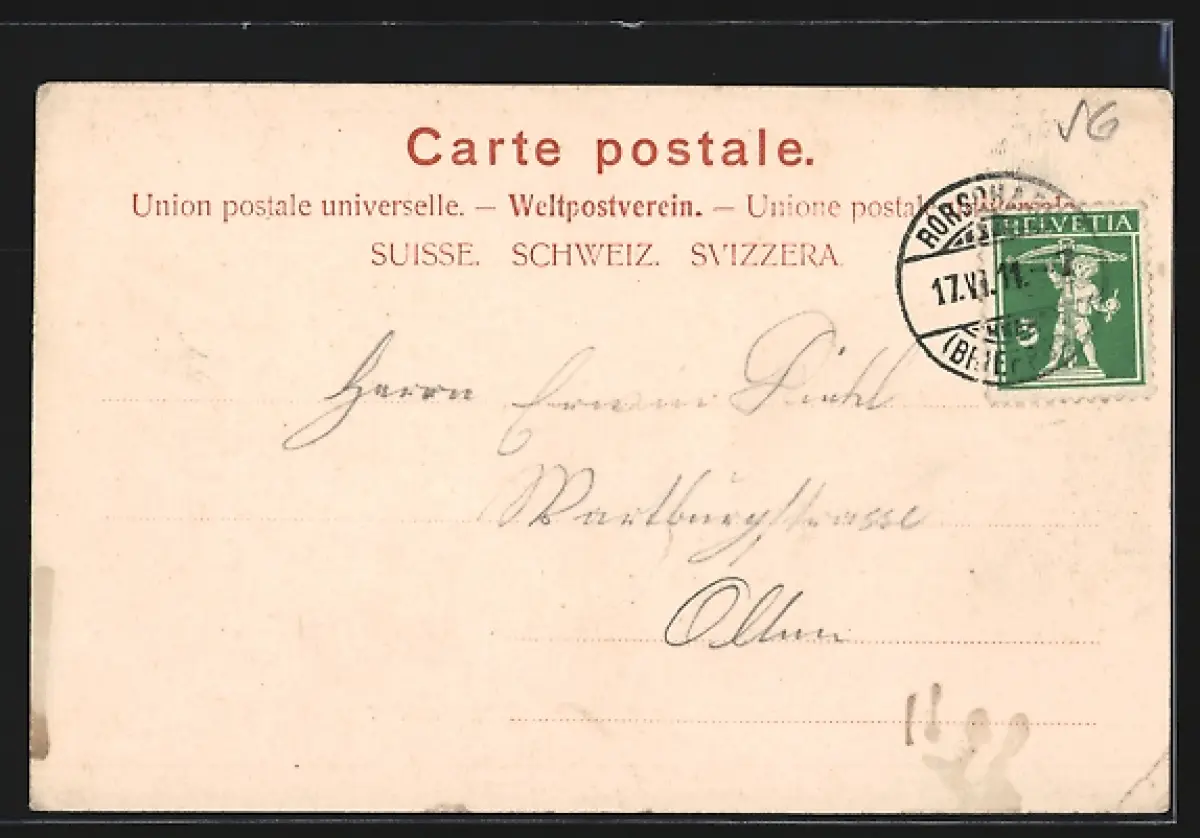 56
Carte postale.
Union postale universelle. — Weltpostverein. — Unione postale
SUISSE. SCHWEIZ. SVIZZERA.
RORSCHACH
17.VI.11.–7
(BRIEF
HELVETIA
5
Herrn Erwin
Wartburgstrasse
Olten